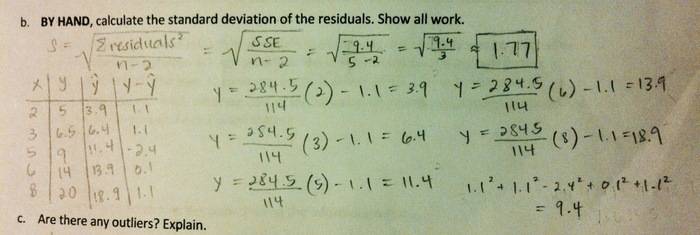 b. BY HAND, calculate the standard deviation of the residuals. Show all work.
S = √(Σ residuals² / n-2) = √(SSE / n-2) = √(9.4 / 5-2) = √(9.4 / 3) ≈ 1.77
x | y | ŷ | y-ŷ
2 | 5 | 3.9 | 1.1
3 | 6.5 | 6.4 | 1.1
5 | 9 | 11.4 | -2.4
6 | 14 | 13.9 | 0.1
8 | 20 | 18.9 | 1.1
y = 284.5/114 (2) - 1.1 = 3.9
y = 284.5/114 (3) - 1.1 = 6.4
y = 284.5/114 (5) - 1.1 = 11.4
y = 284.5/114 (6) - 1.1 = 13.9
y = 2845/114 (8) - 1.1 = 18.9
1.1² + 1.1² - 2.4² + 0.1² + 1.1²
= 9.4
c. Are there any outliers? Explain.